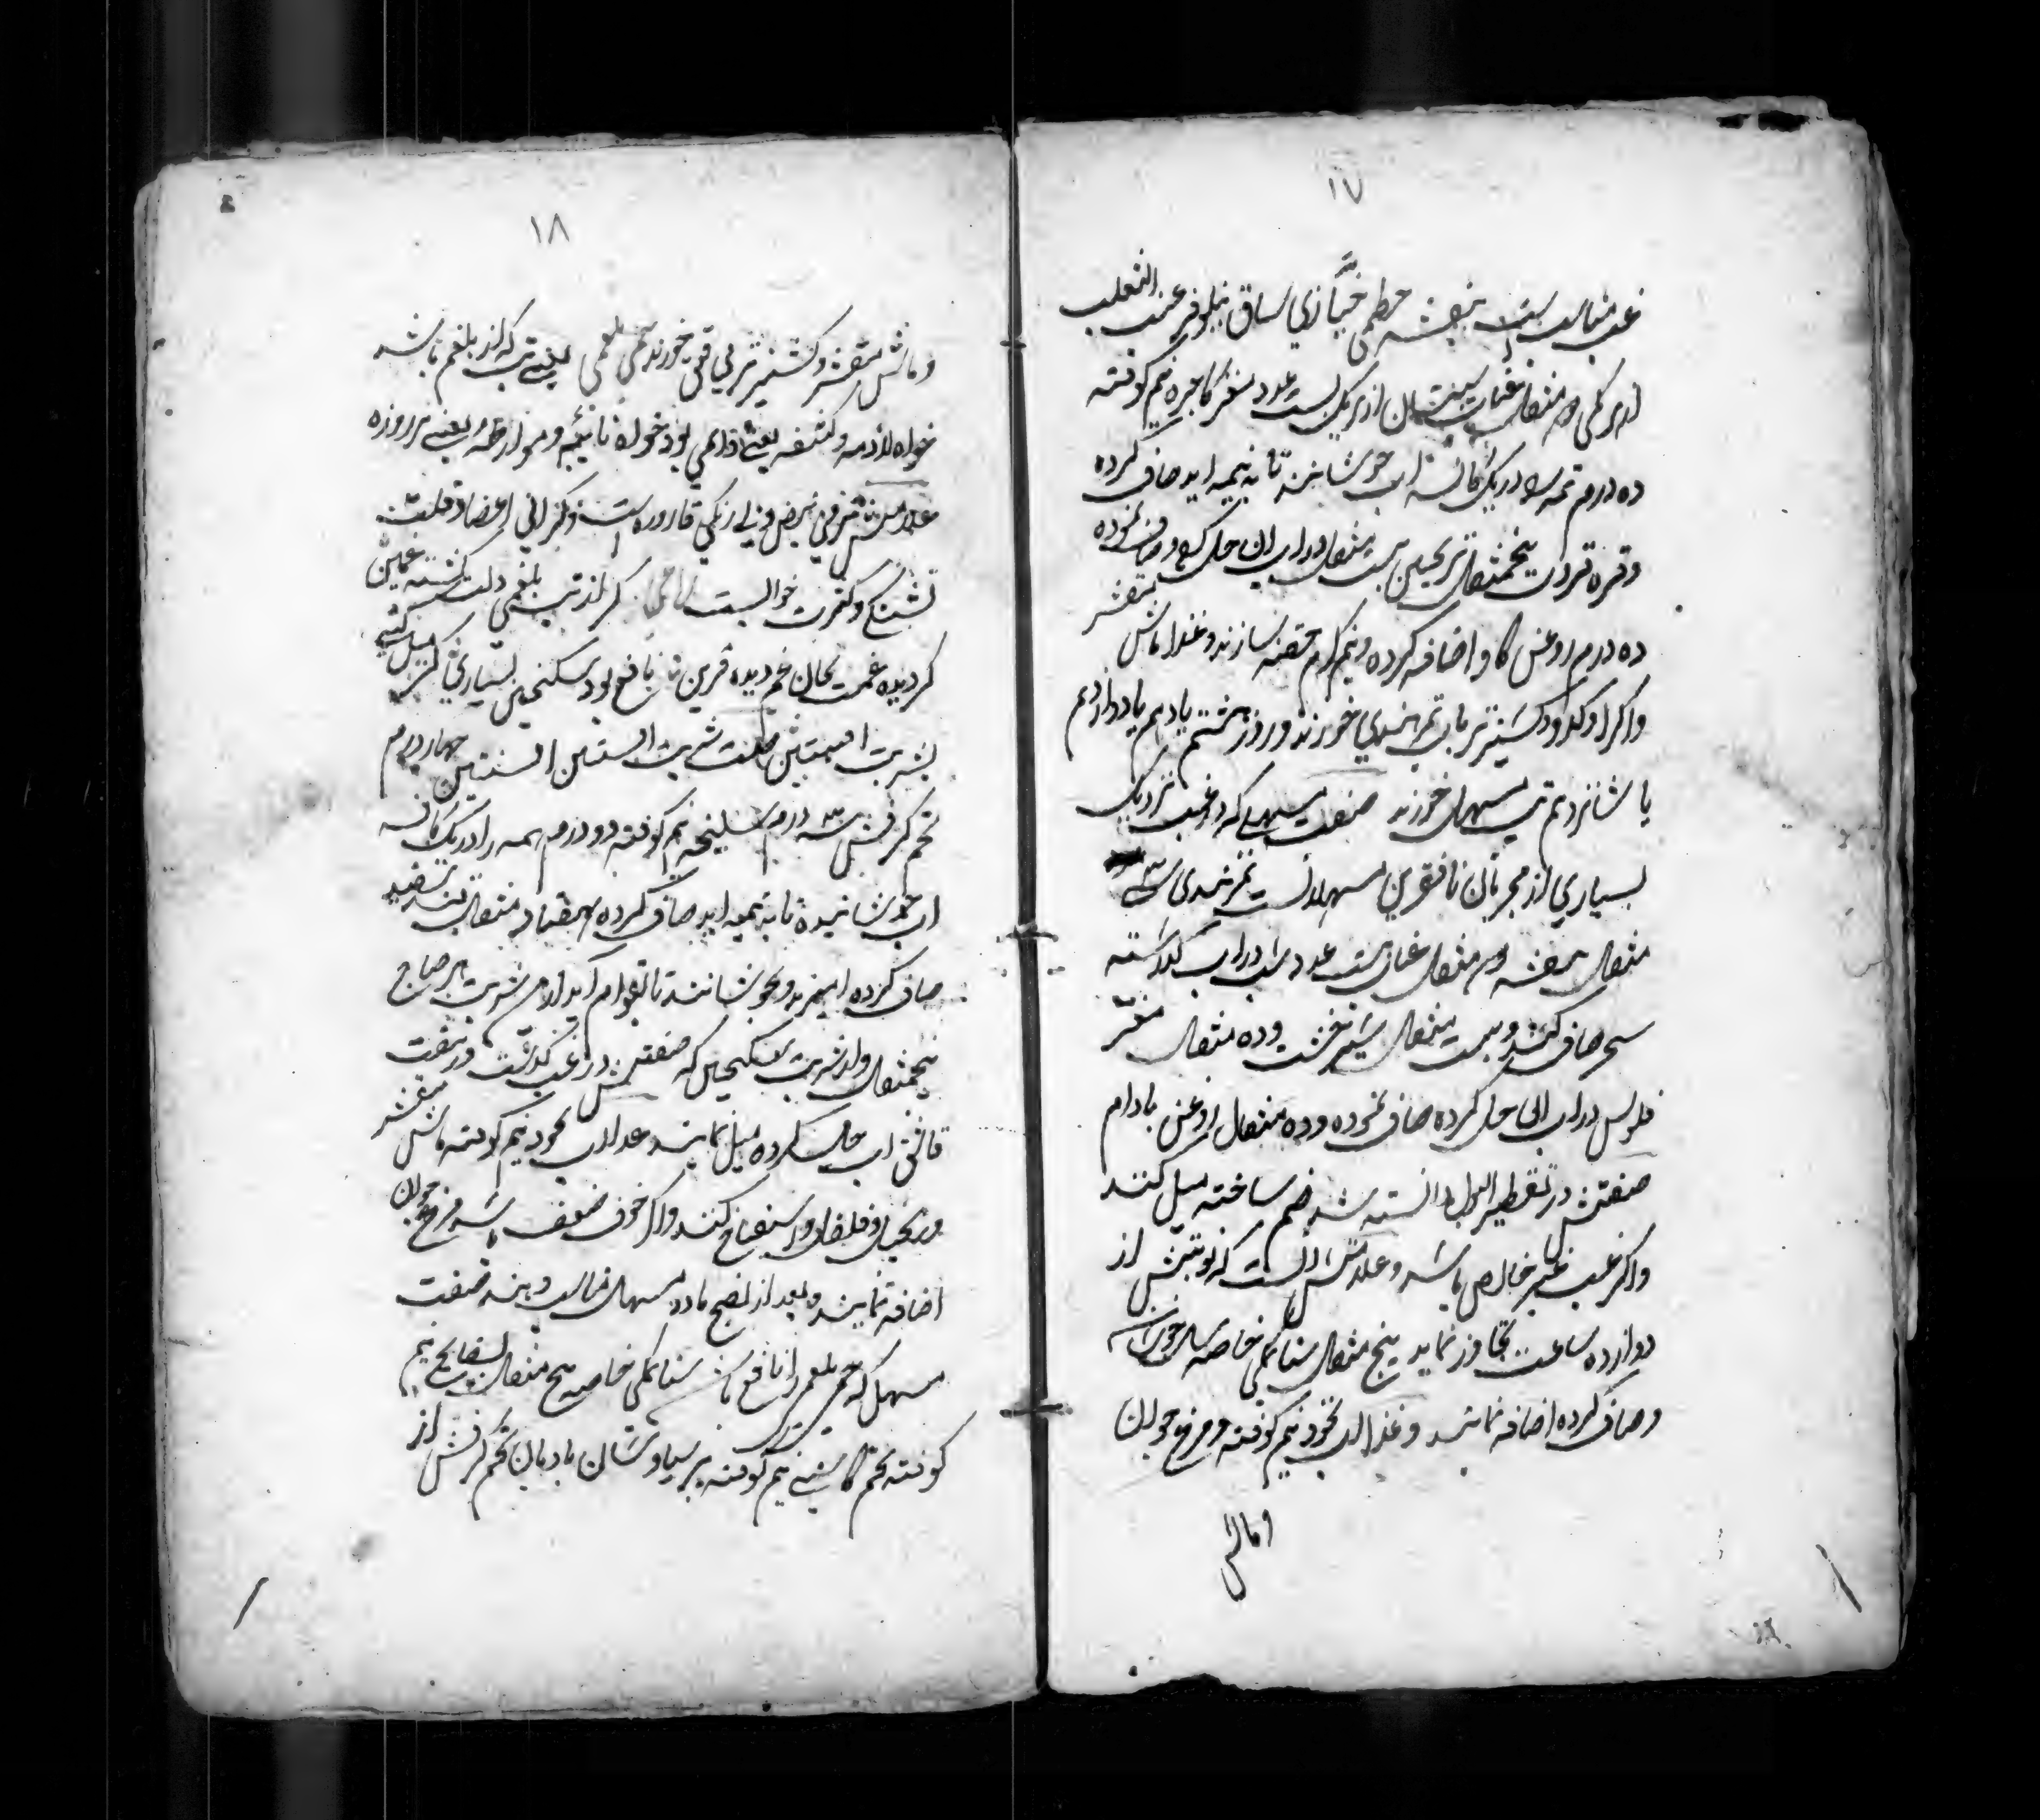 ۱۷
غب مناسبست بنفشه خطمی خبازی ساق نیلوفر عنب الثعلب
از هر یکی سه مثقال عناب سپستان از هر یک بیست عدد مغز کاجره نیم کوفته
ده درم همه را در یک کاسه اب جوشانند تا به نیمه اید صاف کرده
وقره قروت پنجمثقال ترنجبین بیست مثقال در اب ان حل کرده و صاف نموده
ده درم روغن کاو اضافه کرده و نیم گرم حقنه سازند و غذا ماش مقشر
واکر او کدو و کشنیز تر باب تمر هندی خورند و روز هشتم یا دهم یا دوازدهم
یا شانزدهم مسهل خورند صنعت مسهلی که در غب نزدیک
بسیاری از مجربان نافعترین مسهلاتست تمر هندی سی
مثقال بنفشه سه مثقال عناب بیست عدد شب در اب گذاشته
سحر صاف کنند و بیست مثقال شیرخشت و ده مثقال مغز
فلوس در اب ان حل کرده صاف نموده و ده مثقال روغن بادام
صنعتش در تقطیر البول دانسته شد ضم ساخته میل کنند
واکر غب غیر خالص باشد و علامتش انست که نوبتش از
دوازده ساعت تجاوز نماید پنج مثقال سنا مکی خاصه جوشانده
وصاف کرده اضافه نمایند و غذا اب نخود نیم کوفته و مرغ جوان
و ماش
۱۸
و ماش مقشر و کشنیز تر خورند حمی بلغمی یعنی تب که از بلغم باشد
خواه لازمه و لثقه یعنی دائمی بود خواه نائبه و مواظبه یعنی هر روزه
علامتش نبض و بی رنگی قاروره است و گرانی اعضا و قلت
تشنگی و کثرت خوابست کر از تب بلغمی دلت گشته غمین
گردیده غمت بجان غم دیده قرین نافع بود سکنجبین بسیاری گر میل کنی
بشربت افسنتین صنعت شربت افسنتین افسنتین چهار درم
تخم کرفس سه درم سلیخه نیم کوفته دو درم همه را در یک کاسه
اب جوشانیده تا به نیمه اید صاف کرده هفتاد مثقال قند سفید
صاف کرده امیزند و بجوشانند تا بقوام اید از این شربت هر صباح
پنجمثقال و از شربت سکنجبین که صنعتش در غب گذشت در هفت
قاشق اب حل کرده میل نمایند و غذا اب نخود نیم کوفته ماش مقشر
و زنجبیل و فلفل و اسفناخ کنند و اگر خوف ضعف باشد مرغ جوان
اضافه نمایند و بعد از نضج ماده مسهل مناسب دهند صنعت
مسهل که حمی بلغمی را نافع باشد سنا مکی خاصه پنج مثقال بسفایج نیم
کوفته تخم کاسنی نیم کوفته پرسیاوشان بادیان تخم کرفس از